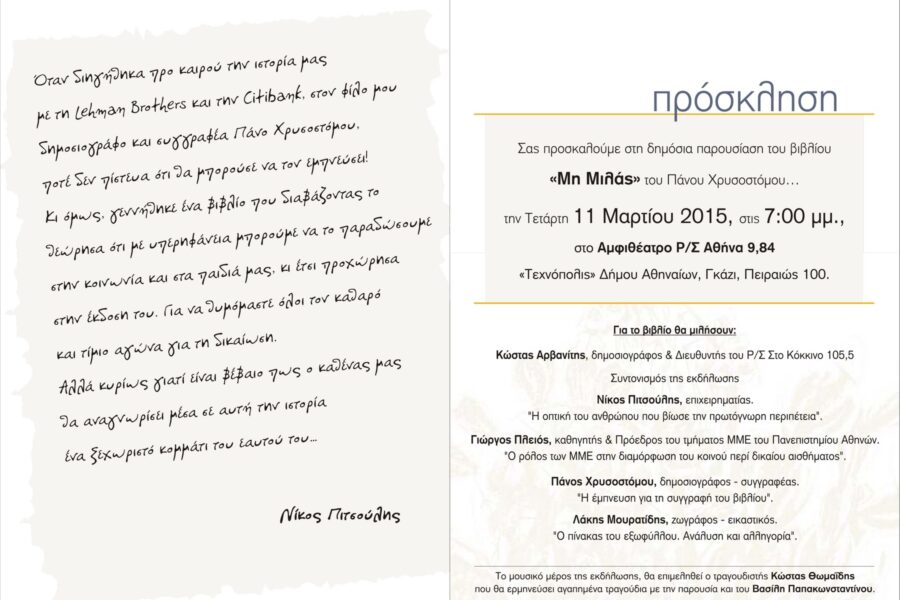 Όταν διηγήθηκα προ καιρού την ιστορία μας
με τη Lehman Brothers και την Citibank, στον φίλο μου
δημοσιογράφο και συγγραφέα Πάνο Χρυσοστόμου,
ποτέ δεν πίστευα ότι θα μπορούσε να τον εμπνεύσει!
Κι όμως, γεννήθηκε ένα βιβλίο που διαβάζοντας το
θεώρησα ότι με υπερηφάνεια μπορούμε να το παραδώσουμε
στην κοινωνία και στα παιδιά μας, κι έτσι προχώρησα
στην έκδοση του. Για να θυμόμαστε όλοι τον καθαρό
και τίμιο αγώνα για τη δικαίωση.
Αλλά κυρίως γιατί είναι βέβαιο πως ο καθένας μας
θα αναγνωρίσει μέσα σε αυτή την ιστορία
ένα ξεχωριστό κομμάτι του εαυτού του...
Νίκος Πιτσούλης
πρόσκληση
Σας προσκαλούμε στη δημόσια παρουσίαση του βιβλίου
«Μη Μιλάς» του Πάνου Χρυσοστόμου...
την Τετάρτη 11 Μαρτίου 2015, στις 7:00 μμ.,
στο Αμφιθέατρο Ρ/Σ Αθήνα 9,84
«Τεχνόπολις» Δήμου Αθηναίων, Γκάζι, Πειραιώς 100.
Για το βιβλίο θα μιλήσουν:
Κώστας Αρβανίτης, δημοσιογράφος & Διευθυντής του Ρ/Σ Στο Κόκκινο 105,5
Συντονισμός της εκδήλωσης
Νίκος Πιτσούλης, επιχειρηματίας.
"Η οπτική του ανθρώπου που βίωσε την πρωτόγνωρη περιπέτεια".
Γιώργος Πλειός, καθηγητής & Πρόεδρος του τμήματος ΜΜΕ του Πανεπιστημίου Αθηνών.
"Ο ρόλος των ΜΜΕ στην διαμόρφωση του κοινού περί δικαίου αισθήματος".
Πάνος Χρυσοστόμου, δημοσιογράφος - συγγραφέας.
"Η έμπνευση για τη συγγραφή του βιβλίου".
Λάκης Μουρατίδης, ζωγράφος - εικαστικός.
"Ο πίνακας του εξωφύλλου. Ανάλυση και αλληγορία".
Το μουσικό μέρος της εκδήλωσης, θα επιμεληθεί ο τραγουδιστής Κώστας Θωμαΐδης
που θα ερμηνεύσει αγαπημένα τραγούδια με την παρουσία και του Βασίλη Παπακωνσταντίνου.